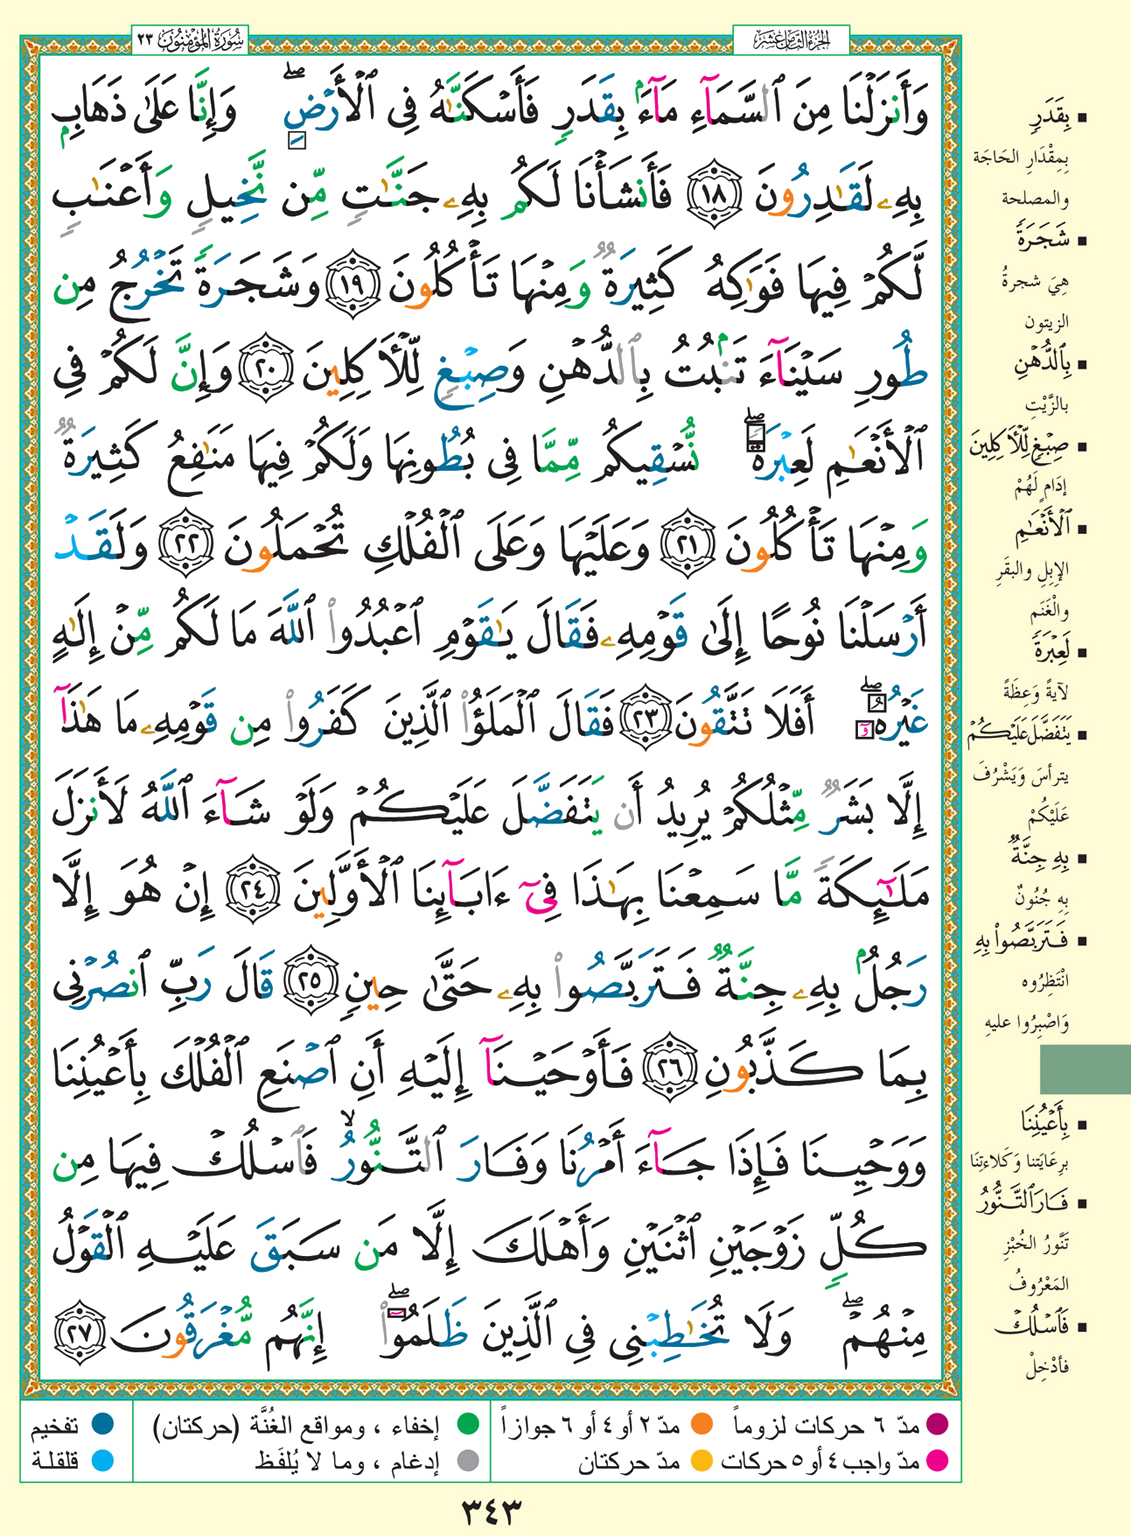 سُورَةُ المُؤْمِنُون ٢٣
الجزء الثامن عشر
وَأَنزَلْنَا مِنَ ٱلسَّمَآءِ مَآءًۢ بِقَدَرٍ فَأَسْكَنَّٰهُ فِى ٱلْأَرْضِ ۖ وَإِنَّا عَلَىٰ ذَهَابٍۭ
بِهِۦ لَقَٰدِرُونَ ﴿١٨﴾ فَأَنشَأْنَا لَكُم بِهِۦ جَنَّٰتٍ مِّن نَّخِيلٍ وَأَعْنَٰبٍ
لَّكُمْ فِيهَا فَوَٰكِهُ كَثِيرَةٌ وَمِنْهَا تَأْكُلُونَ ﴿١٩﴾ وَشَجَرَةً تَخْرُجُ مِن
طُورِ سَيْنَآءَ تَنۢبُتُ بِٱلدُّهْنِ وَصِبْغٍ لِّلْـَٔاكِلِينَ ﴿٢٠﴾ وَإِنَّ لَكُمْ فِى
ٱلْأَنْعَٰمِ لَعِبْرَةً ۖ نُّسْقِيكُم مِّمَّا فِى بُطُونِهَا وَلَكُمْ فِيهَا مَنَٰفِعُ كَثِيرَةٌ
وَمِنْهَا تَأْكُلُونَ ﴿٢١﴾ وَعَلَيْهَا وَعَلَى ٱلْفُلْكِ تُحْمَلُونَ ﴿٢٢﴾ وَلَقَدْ
أَرْسَلْنَا نُوحًا إِلَىٰ قَوْمِهِۦ فَقَالَ يَٰقَوْمِ ٱعْبُدُوا۟ ٱللَّهَ مَا لَكُم مِّنْ إِلَٰهٍ
غَيْرُهُۥٓ ۖ أَفَلَا تَتَّقُونَ ﴿٢٣﴾ فَقَالَ ٱلْمَلَؤُا۟ ٱلَّذِينَ كَفَرُوا۟ مِن قَوْمِهِۦ مَا هَٰذَآ
إِلَّا بَشَرٌ مِّثْلُكُمْ يُرِيدُ أَن يَتَفَضَّلَ عَلَيْكُمْ وَلَوْ شَآءَ ٱللَّهُ لَأَنزَلَ
مَلَٰٓئِكَةً مَّا سَمِعْنَا بِهَٰذَا فِىٓ ءَابَآئِنَا ٱلْأَوَّلِينَ ﴿٢٤﴾ إِنْ هُوَ إِلَّا
رَجُلٌۢ بِهِۦ جِنَّةٌ فَتَرَبَّصُوا۟ بِهِۦ حَتَّىٰ حِينٍ ﴿٢٥﴾ قَالَ رَبِّ ٱنصُرْنِى
بِمَا كَذَّبُونِ ﴿٢٦﴾ فَأَوْحَيْنَآ إِلَيْهِ أَنِ ٱصْنَعِ ٱلْفُلْكَ بِأَعْيُنِنَا
وَوَحْيِنَا فَإِذَا جَآءَ أَمْرُنَا وَفَارَ ٱلتَّنُّورُ ۙ فَٱسْلُكْ فِيهَا مِن
كُلٍّ زَوْجَيْنِ ٱثْنَيْنِ وَأَهْلَكَ إِلَّا مَن سَبَقَ عَلَيْهِ ٱلْقَوْلُ
مِنْهُمْ ۖ وَلَا تُخَٰطِبْنِى فِى ٱلَّذِينَ ظَلَمُوٓا۟ ۖ إِنَّهُم مُّغْرَقُونَ ﴿٢٧﴾
▪ بِقَدَرٍ
بِمِقْدَارِ الحَاجَة
والمصلحة
▪ شَجَرَةً
هِيَ شجرةُ
الزيتون
▪ بِٱلدُّهْنِ
بالزَّيْتِ
▪ صِبْغٍ لِّلْـَٔاكِلِينَ
إدَامٍ لَهُمْ
▪ ٱلْأَنْعَٰمِ
الإبِلِ والبقَرِ
والْغَنَم
▪ لَعِبْرَةً
لآيةً وَعِظَةً
▪ يَتَفَضَّلَ عَلَيْكُمْ
يترأسَ وَيَشْرُفَ
عَلَيْكُمْ
▪ بِهِ جِنَّةٌ
بِهِ جُنُونٌ
▪ فَتَرَبَّصُوا۟ بِهِ
انْتَظِرُوه
وَاصْبِرُوا عليهِ
▪ بِأَعْيُنِنَا
برِعَايَتنا وَكَلاءتِنَا
▪ فَارَ ٱلتَّنُّورُ
تَنُّورُ الخُبْزِ
المَعْرُوفُ
▪ فَٱسْلُكْ
فأدْخِلْ
مدّ ٦ حركات لزوماً مدّ ٢ أو ٤ أو ٦ جوازاً إخفاء ، ومواقع الغُنَّة (حركتان) تفخيم
مدّ واجب ٤ أو ٥ حركات مدّ حركتان إدغام ، وما لا يُلفَظ قلقلة
٣٤٣